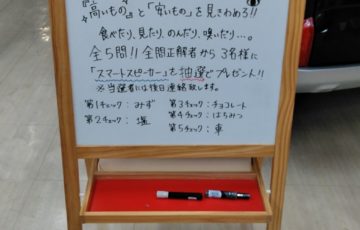 『高いもの』と『安いもの』を見きわめろ!!
食べたり、見たり、のんだり、嗅いだり…。
全5問!! 全問正解者から3名様に
「スマートスピーカー」を抽選でプレゼント!!
※当選者には後日連絡致します。
第1チェック：みず
第2チェック：塩
第3チェック：チョコレート
第4チェック：はちみつ
第5チェック：車